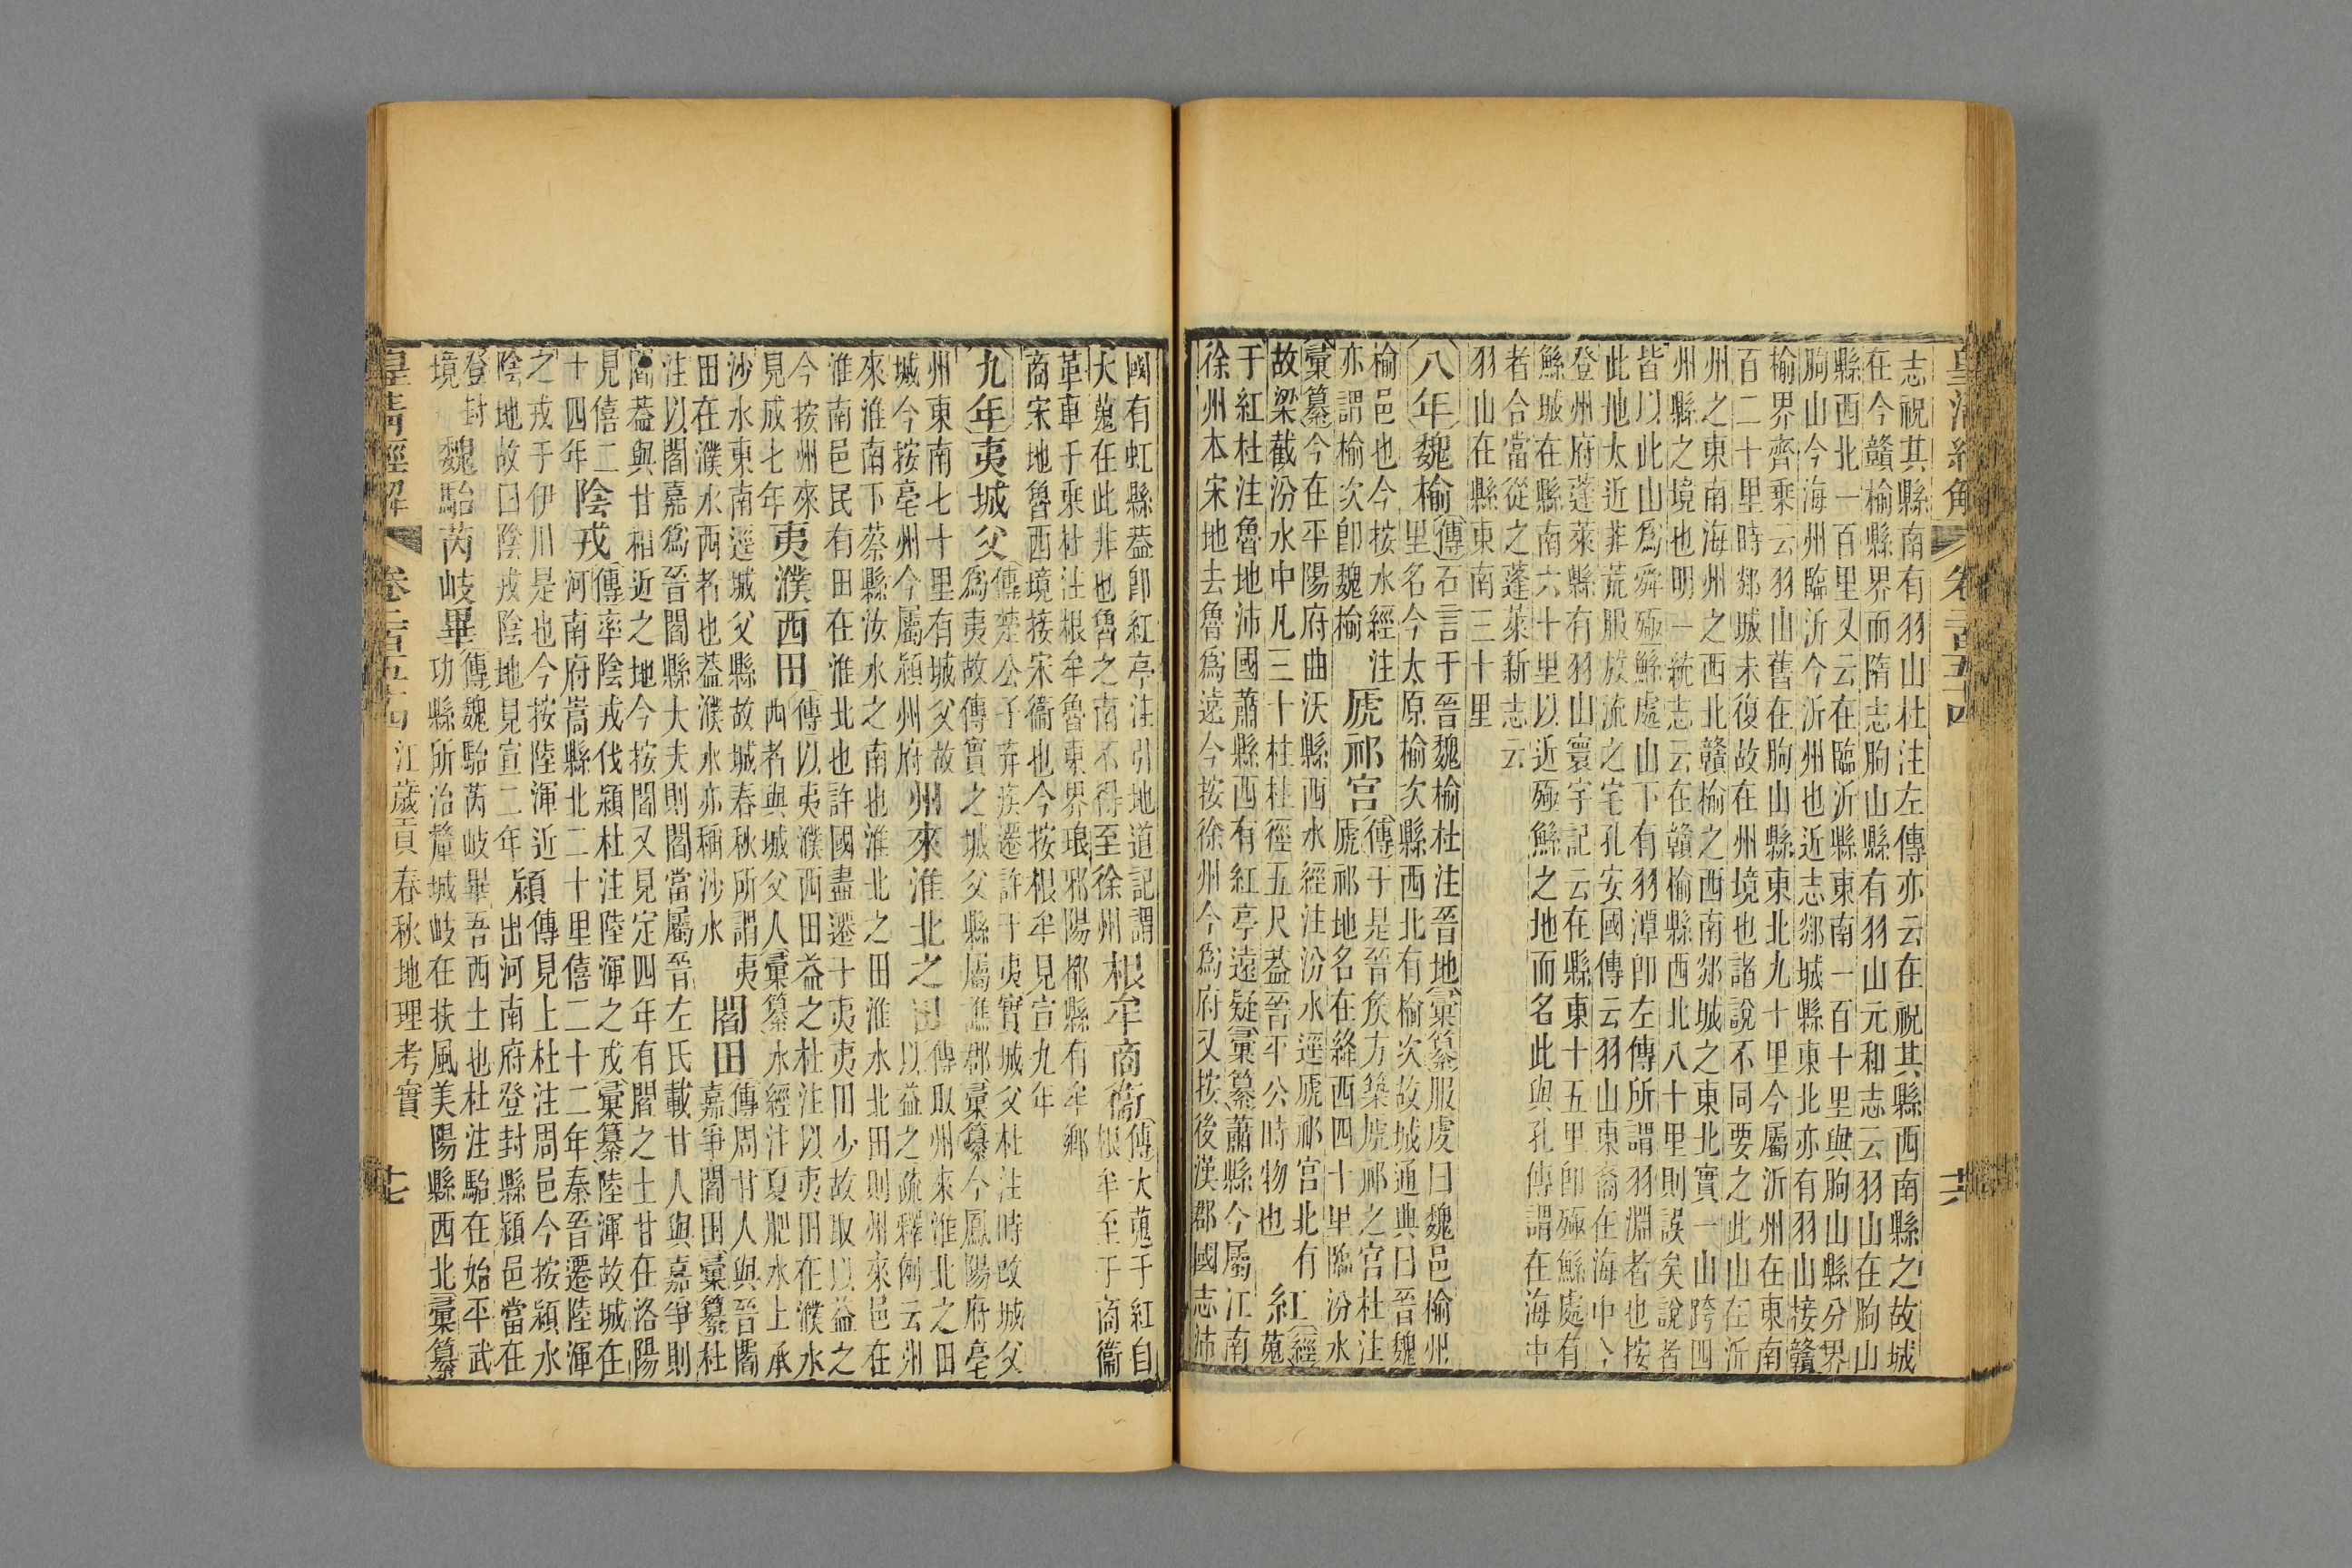 皇清經解 卷二百五十四 十六
志祝其縣南有羽山杜注左傳亦云在祝其縣西南縣之故城
在今贛榆縣界而隋志朐山縣有羽山元和志云羽山在朐山
縣西北一百里又云在臨沂縣東南一百十里與朐山縣分界
朐山今海州臨沂今沂州也近志郯城縣東北亦有羽山接贛
榆界齊乘云羽山舊在朐山縣東北九十里今屬沂州在東南
百二十里時郯城未復故在州境也諸說不同要之此山在沂
州之東南海州之西北贛榆之西南郯城之東北實一山跨四
州縣之境也明一統志云在贛榆縣西北八十里則誤矣說者
皆以此山爲舜殛鯀處山下有羽潭卽左傳所謂羽淵者也按
此地太近非荒服放流之宅孔安國傳云羽山東裔在海中今
登州府蓬萊縣有羽山寰宇記云在縣東十五里卽殛鯀處有
鯀城在縣南六十里以近殛鯀之地而名此與孔傳謂在海中
者合當從之蓬萊新志云
羽山在縣東南三十里
八年魏榆傳石言于晉魏榆杜注晉地彙纂服虔曰魏邑榆州
里名今太原榆次縣西北有榆次故城通典曰晉魏
榆邑也今按水經注
亦謂榆次卽魏榆
虒祁宮傳于是晉侯方築虒祁之宮杜注
虒祁地名在絳西四十里臨汾水
彙纂今在平陽府曲沃縣西水經注汾水逕虒祁宮北有
故梁截汾水中凡三十柱柱徑五尺蓋晉平公時物也
紅經蒐
于紅杜注魯地沛國蕭縣西有紅亭遠疑彙纂蕭縣今屬江南
徐州本宋地去魯爲遠今按徐州今爲府又按後漢郡國志沛
國有虹縣蓋卽紅亭注引地道記謂
大蒐在此非也魯之南不得至徐州
根牟商衞傳大蒐于紅自
根牟至于商衞
革車千乘杜注根牟魯東界琅邪陽都縣有牟鄉
商宋地魯西境接宋衞也今按根牟見宣九年
九年夷城父傳楚公子弃疾遷許于夷實城父杜注時改城父
爲夷故傳實之城父縣屬譙郡彙纂今鳳陽府亳
州東南七十里有城父故
城今按亳州今屬潁州府
州來淮北之田傳取州來淮北之田
以益之疏釋例云州
來淮南下蔡縣汝水之南也淮北之田淮水北田則州來邑在
淮南邑民有田在淮北也許國盡遷于夷夷田少故取以益之
今按州來
見成七年
夷濮西田傳以夷濮西田益之杜注以夷田在濮水
西者與城父人彙纂水經注夏肥水上承
沙水東南逕城父縣故城春秋所謂夷
田在濮水西者也蓋濮水亦稱沙水
閻田傳周甘人與晉閻
嘉爭閻田彙纂杜
注以閻嘉爲晉閻縣大夫則閻當屬晉左氏載甘人與嘉爭則
閻蓋與甘相近之地今按閻又見定四年有閻之土甘在洛陽
見僖二
十四年
陰戎傳率陰戎伐潁杜注陸渾之戎彙纂陸渾故城在
河南府嵩縣北二十里僖二十二年秦晉遷陸渾
之戎于伊川是也今按陸渾近
陰地故曰陰戎陰地見宣二年
潁傳見上杜注周邑今按潁水
出河南府登封縣潁邑當在
登封
境
魏駘芮岐畢傳魏駘芮岐畢吾西土也杜注駘在始平武
功縣所治釐城岐在扶風美陽縣西北彙纂
皇清經解 卷二百五十四 江歲貢春秋地理考實 十七